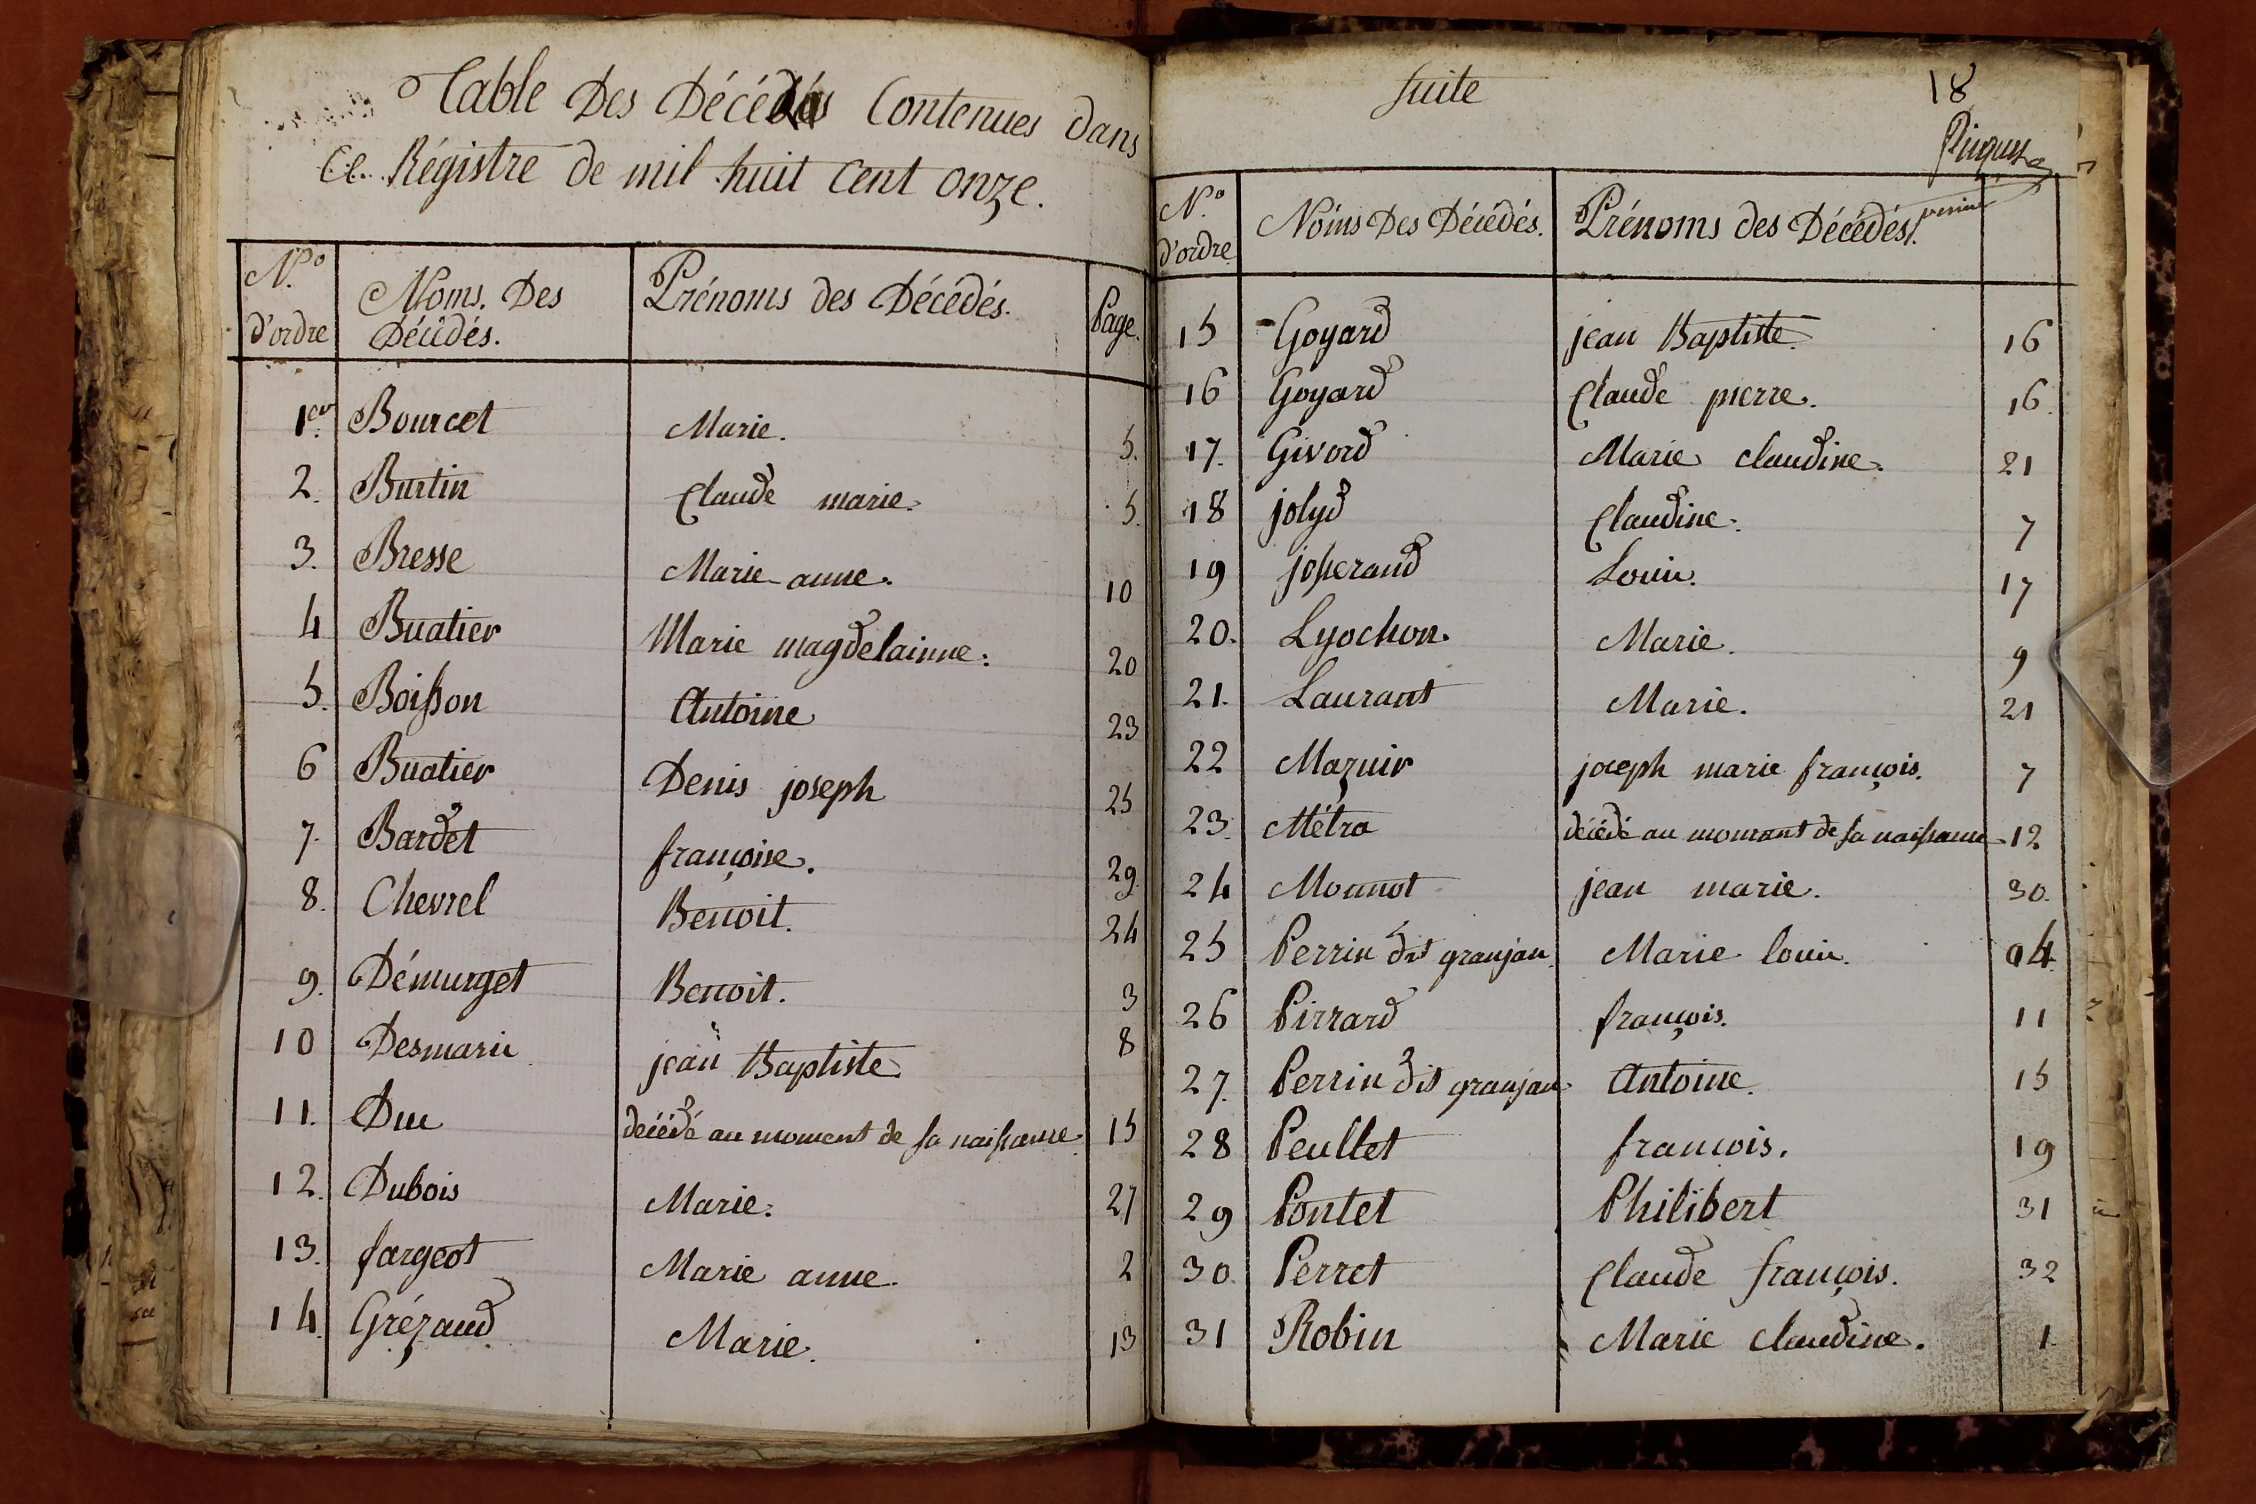 Table Des Décédés Contenues dans
Ce Régistre de mil huit Cent onze.
N.o d'ordre Noms. Des Décédés. Prénoms des Décédés. Page.
1er Bourcet Marie. 5.
2. Burtin Claude marie. 5.
3. Bresse Marie anne. 10
4 Buatier Marie magdelainne. 20
5. Boisson Antoine 23
6 Buatier Denis joseph 25
7. Bardet françoise. 29.
8. Chevrel Benoit. 24
9. Démurget Benoit. 3
10 Desmaris jean Baptiste 8
11. Duc décédé au moment de sa naissance 15
12. Dubois Marie. 27
13. fargeot Marie anne. 2
14. Grézaud Marie. 13
suite 18
N.o d'ordre Noms Des Décédés. Prénoms des Décédés.
15 Goyard jean Baptiste. 16
16 Goyard Claude pierre. 16.
17. Givord Marie claudine. 21
18 jolyd Claudine. 7
19 josserand Louis. 17
20. Lyochon. Marie. 9
21. Laurant Marie. 21
22 Mazuir joseph marie françois. 7
23. Métra décédé au momant de sa naissance 12
24 Monnot jean marie. 30.
25 Perrin dit granjan. Marie louis. 04.
26 Pirrard françois. 11
27. Perrin dit granjan Antoine. 15
28 Peullet francois. 19
29 Pontet Philibert 31
30. Perret Claude françois. 32
31 Robin Marie claudine. 1.